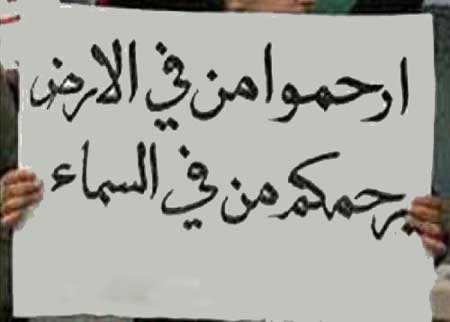 ارحموا من في الارض
يرحمكم من في السماء